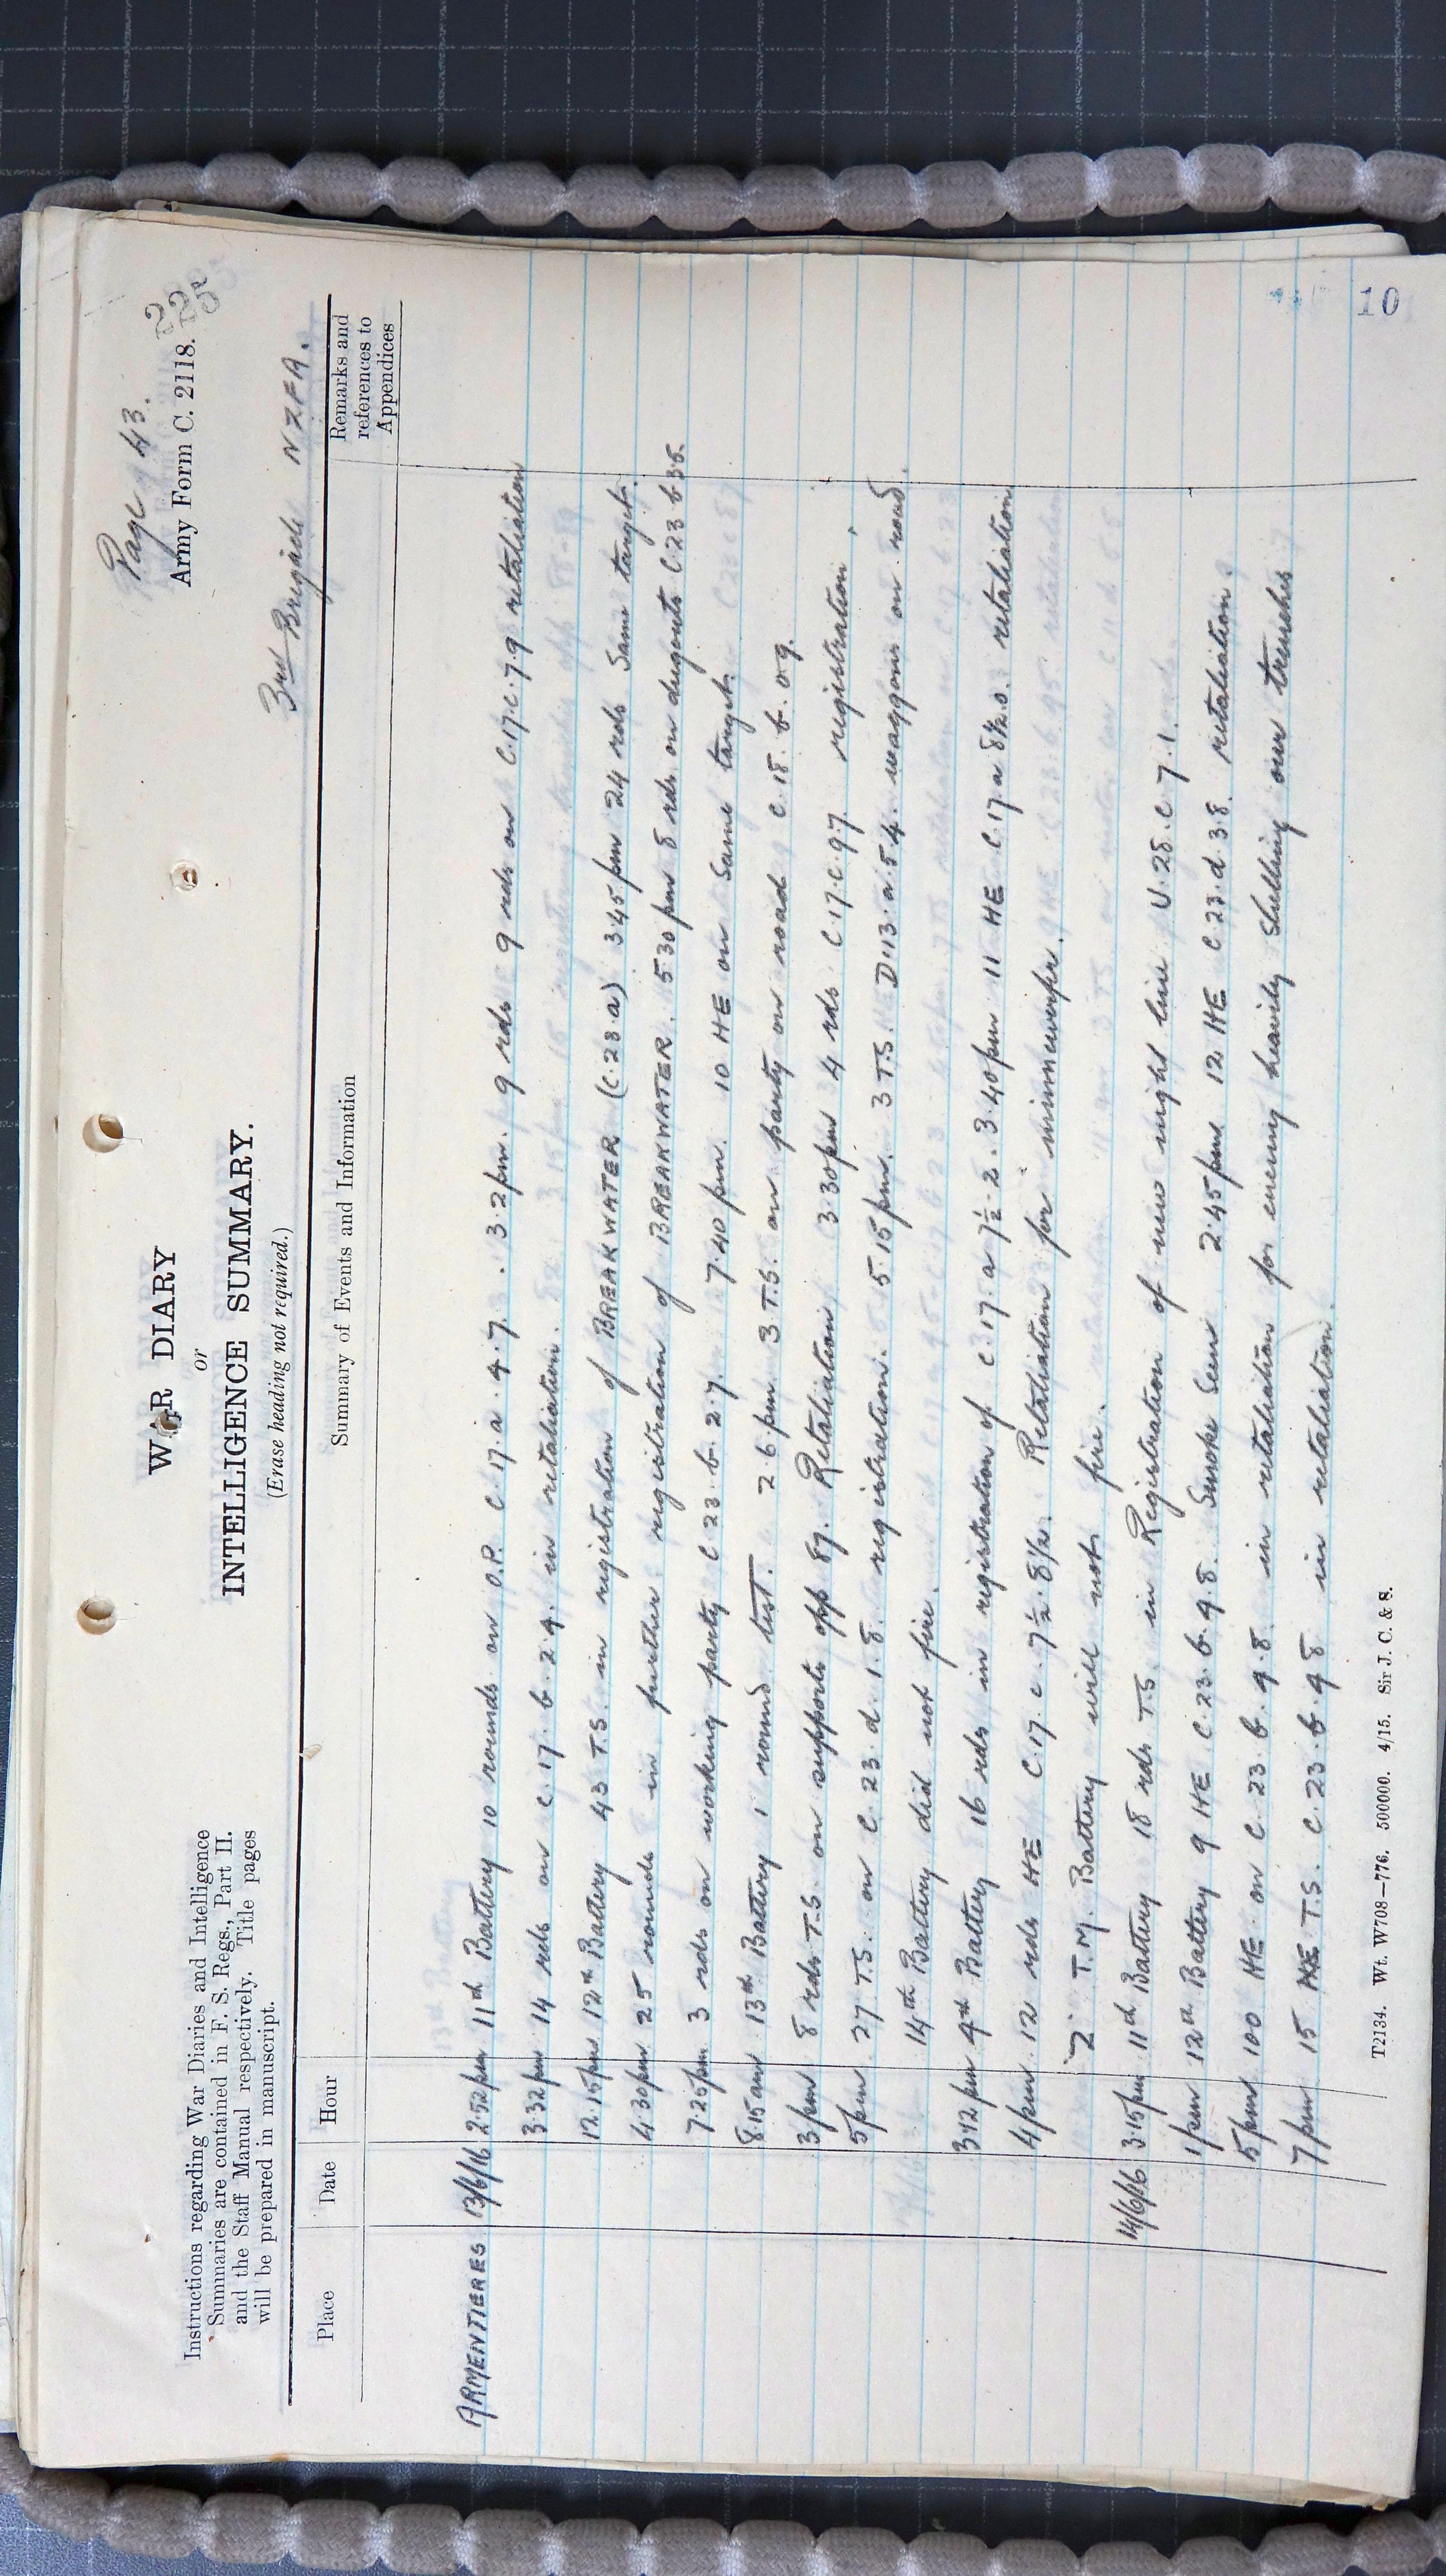 Page 43.
Army Form C. 2118.
225
WAR DIARY
or
INTELLIGENCE SUMMARY.
(Erase heading not required.)
Instructions regarding War Diaries and Intelligence
Summaries are contained in F. S. Regs., Part II.
and the Staff Manual respectively. Title pages
will be prepared in manuscript.
3rd Brigade NZFA.
Place Date Hour Summary of Events and Information Remarks and references to Appendices
ARMENTIERES 13/6/16 2.52pm 11th Battery 10 rounds on O.P. C.17.a.4.7. 3.2pm. 9 rds 9 rds on C.17.c.7.9 retaliation
3.32pm 14 rds on C.17.b.2.4. in retaliation.
12.15pm 12th Battery 43 T.S. in registration of BREAKWATER (C.23.a) 3.45pm 24 rds Same target.
4.30pm 25 rounds in further registration of BREAKWATER. 5.30pm 8 rds on dugouts C.23 b 3.5.
7.25pm 3 rds on working party C.23.b.2.7. 7.40pm. 10 HE on Same target.
8.15am 13th Battery 1 round test. 2.6pm 3 T.S. on party on road C.18.b.0.9.
3pm 8 rds T.S. on supports opp 87. Retaliation 3.30pm 4 rds C.17.c.9.7 registration.
5pm 27 T.S. on C.23.d.1.8. registration. 5.15pm. 3 T.S. D.13.a.5.4. waggons on road.
14th Battery did not fire.
3.12pm 4th Battery 16 rds in registration of C.17.a 7½.2. 3.40pm 11 HE C.17.a 8½.0. retaliation
4pm 12 rds HE C.17.c.7½.8½. Retaliation for minnewerfer.
'Z' T.M. Battery will not fire.
14/6/16 3.15pm 11th Battery 18 rds T.S. in Registration of new night line U.28.c.7.1.
1pm 12th Battery 9 HE C.23.b.9.8. Smoke Seen 2.45pm 12 HE C.23.d.3.8. retaliation
5pm 100 HE on C.23 b.9.8. in retaliation for enemy heavily shelling our trenches
7pm 15 HE T.S. C.23.b.9 8 in retaliation.
T2134. Wt. W708—776. 500000. 4/15. Sir J. C. & S.
10